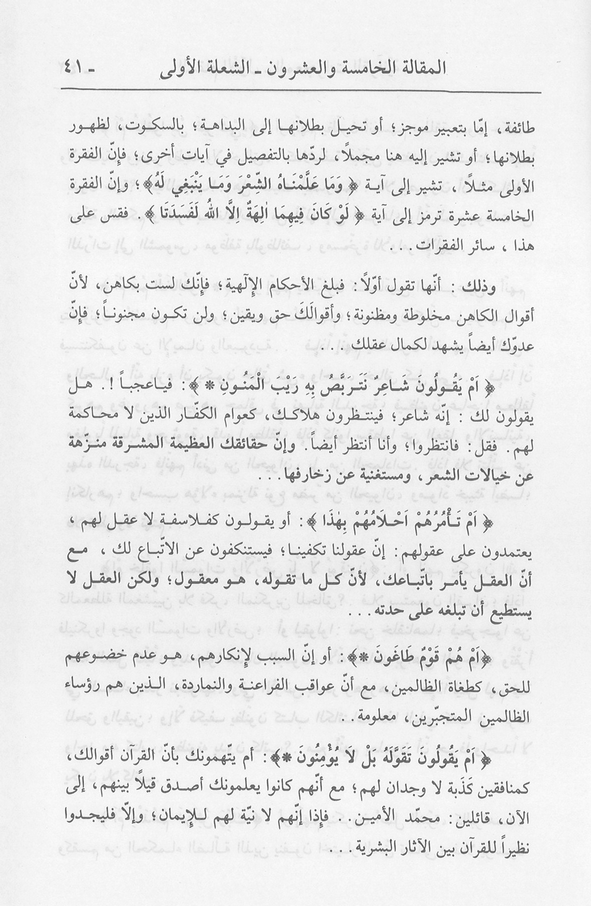 المقالة الخامسة والعشرون ـ الشعلة الأولى ـ ٤١
طائفة، إمّا بتعبير موجز؛ أو تحيل بطلانها إلى البداهة؛ بالسكوت، لظهور
بطلانها؛ أو تشير إليه هنا مجملاً، لردّها بالتفصيل في آيات أخرى؛ فإنّ الفقرة
الأولى مثلاً، تشير إلى آية ﴿ وَمَا عَلَّمْنَاهُ الشِّعْرَ وَمَا يَنْبَغِي لَهُ﴾؛ وإنّ الفقرة
الخامسة عشرة ترمز إلى آية ﴿ لَوْ كَانَ فِيهِمَا اٰلِهَةٌ اِلاَّ اللهُ لَفَسَدَتَا ﴾. فقس على
هذا ، سائر الفقرات...
وذلك : أنّها تقول أوّلاً: فبلغ الأحكام الإلٓهية؛ فإنّك لست بكاهن، لأنّ
أقوال الكاهن مخلوطة ومظنونة؛ وأقوالَكَ حق ويقين؛ ولن تكون مجنوناً؛ فإنّ
عدوّك أيضاً يشهد لكمال عقلك...
﴿ اَمْ يَقُولُونَ شَاعِرٌ نَتَرَبَّصُ بِهِ رَيْبَ الْمَنُونِ *﴾: فياعجباً !. هل
يقولون لك : إنّه شاعر؛ فينتظرون هلاكك، كعوام الكفّار الذين لا محاكمة
لهم. فقل: فانتظروا؛ وأنا أنتظر أيضاً. وإنّ حقائقك العظيمة المشرقة منزّهة
عن خيالات الشعر، ومستغنية عن زخارفها...
﴿ اَمْ تَأْمُرُهُمْ اَحْلاَمُهُمْ بِهٰذَا ﴾: أو يقولون كفلاسفة لا عقل لهم ،
يعتمدون على عقولهم: إنّ عقولنا تكفينا؛ فيستنكفون عن الاتّباع لك ، مع
أنّ العقل يأمر بأتّباعك، لأنّ كل ما تقوله، هو معقول؛ ولكن العقل لا
يستطيع أن تبلغه على حدته...
﴿اَمْ هُمْ قَوْمٌ طَاغُونَ *﴾: أو إنّ السبب لإنكارهم، هو عدم خضوعهم
للحق، كطغاة الظالمين، مع أنّ عواقب الفراعنة والنماردة، الذين هم رؤساء
الظالمين المتجبّرين، معلومة..
﴿ اَمْ يَقُولُونَ تَقَوَّلَهُ بَلْ لاَ يُؤْمِنُونَ *﴾: أم يتّهمونك بأنّ القرآن أقوالك،
كمنافقين كَذَبة لا وجدان لهم؛ مع أنّهم كانوا يعلمونك أصدق قيلاً بينهم، إلى
الآن، قائلين: محمّد الأمين.. فإذا إنّهم لا نيّة لهم للإيمان؛ وإلّا فليجدوا
نظيراً للقرآن بين الآثار البشرية...